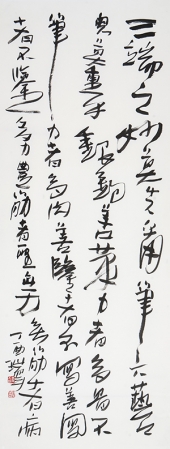 三端之妙莫先乎用筆六藝之
奧莫重乎銀鉤善筆力者多骨不
筆力者多肉善鑒者不寫善寫
者不鑒多力豐筋者聖無力無筋者病
丁酉